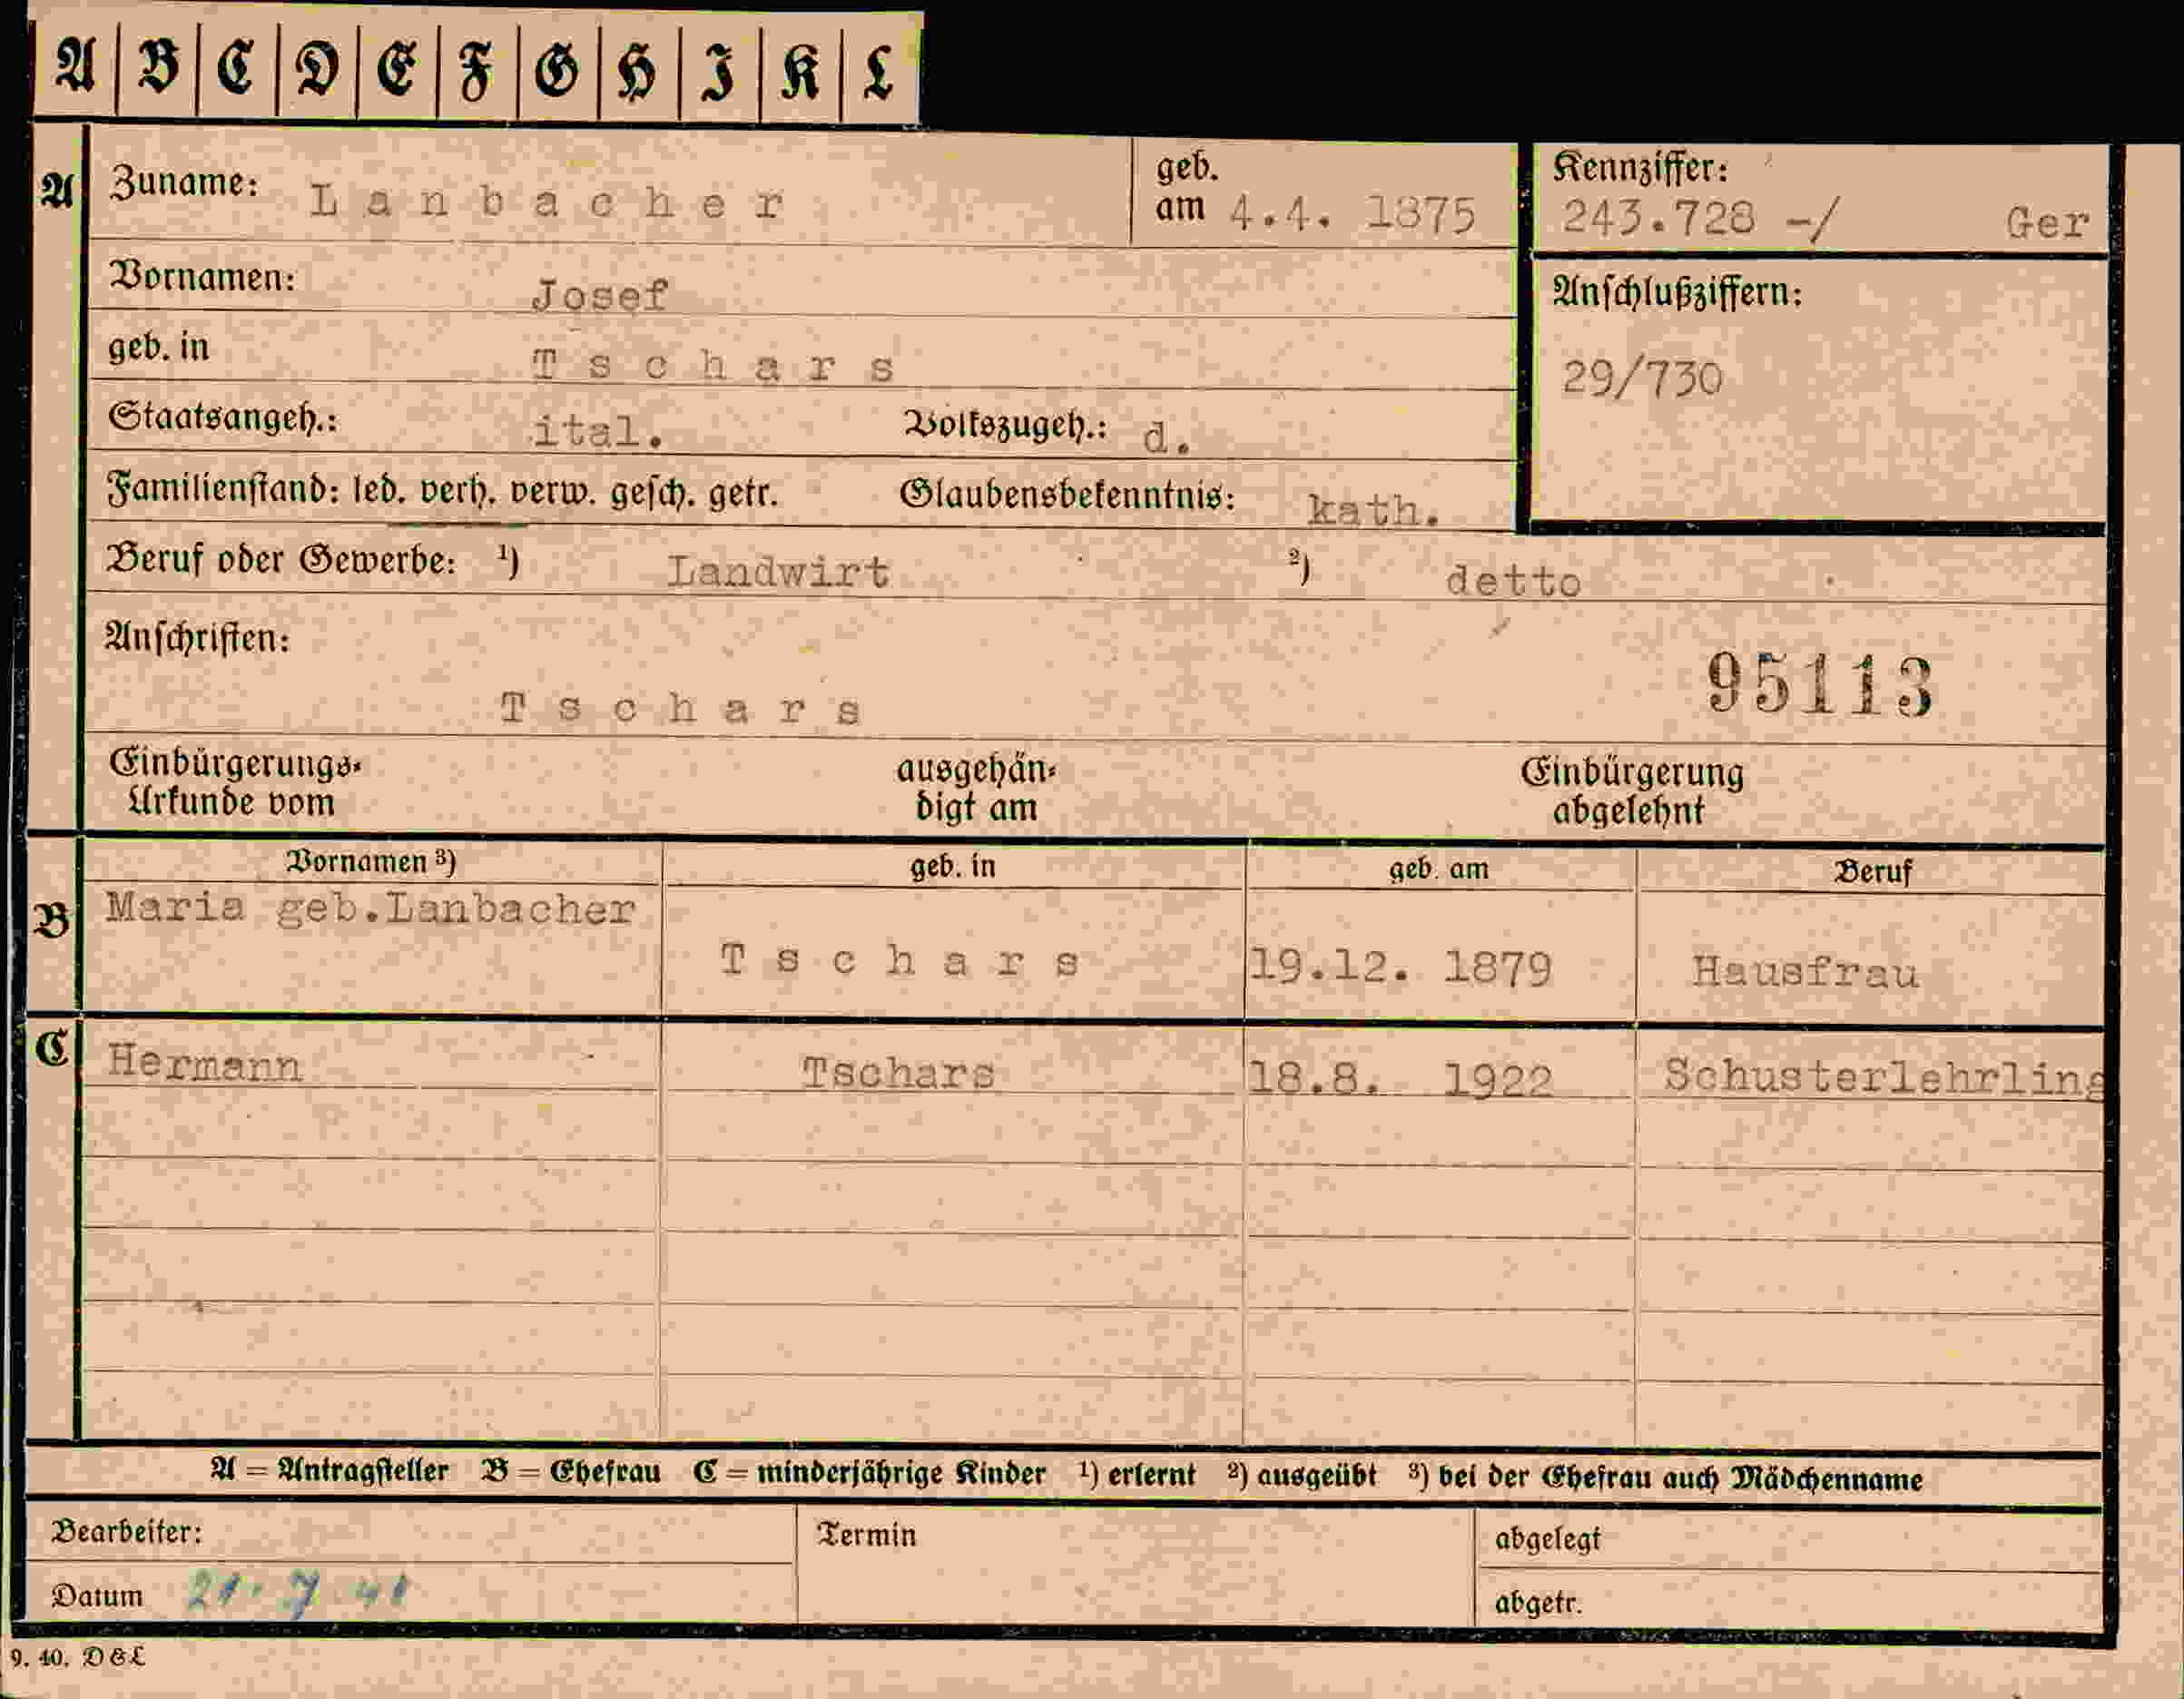 A B C D E F G H I K L
A Zuname: Lanbacher geb. am 4.4. 1875
Kennziffer: 243.728 -/ Ger
Vornamen: Josef
Anschlußziffern:
geb. in Tschars
29/730
Staatsangeh.: ital. Volkszugeh.: d.
Familienstand: led. verh. verw. gesch. getr. Glaubensbekenntnis: kath.
Beruf oder Gewerbe: ¹) Landwirt ²) detto
Anschriften:
Tschars 95113
Einbürgerungs- ausgehän- Einbürgerung
Urkunde vom digt am abgelehnt
Vornamen ³) geb. in geb. am Beruf
B Maria geb.Lanbacher
Tschars 19.12. 1879 Hausfrau
C Hermann Tschars 18.8. 1922 Schusterlehrling
A = Antragsteller B = Ehefrau C = minderjährige Kinder ¹) erlernt ²) ausgeübt ³) bei der Ehefrau auch Mädchenname
Bearbeiter: Termin abgelegt
Datum 21. 7. 41 abgetr.
9. 40. D&L